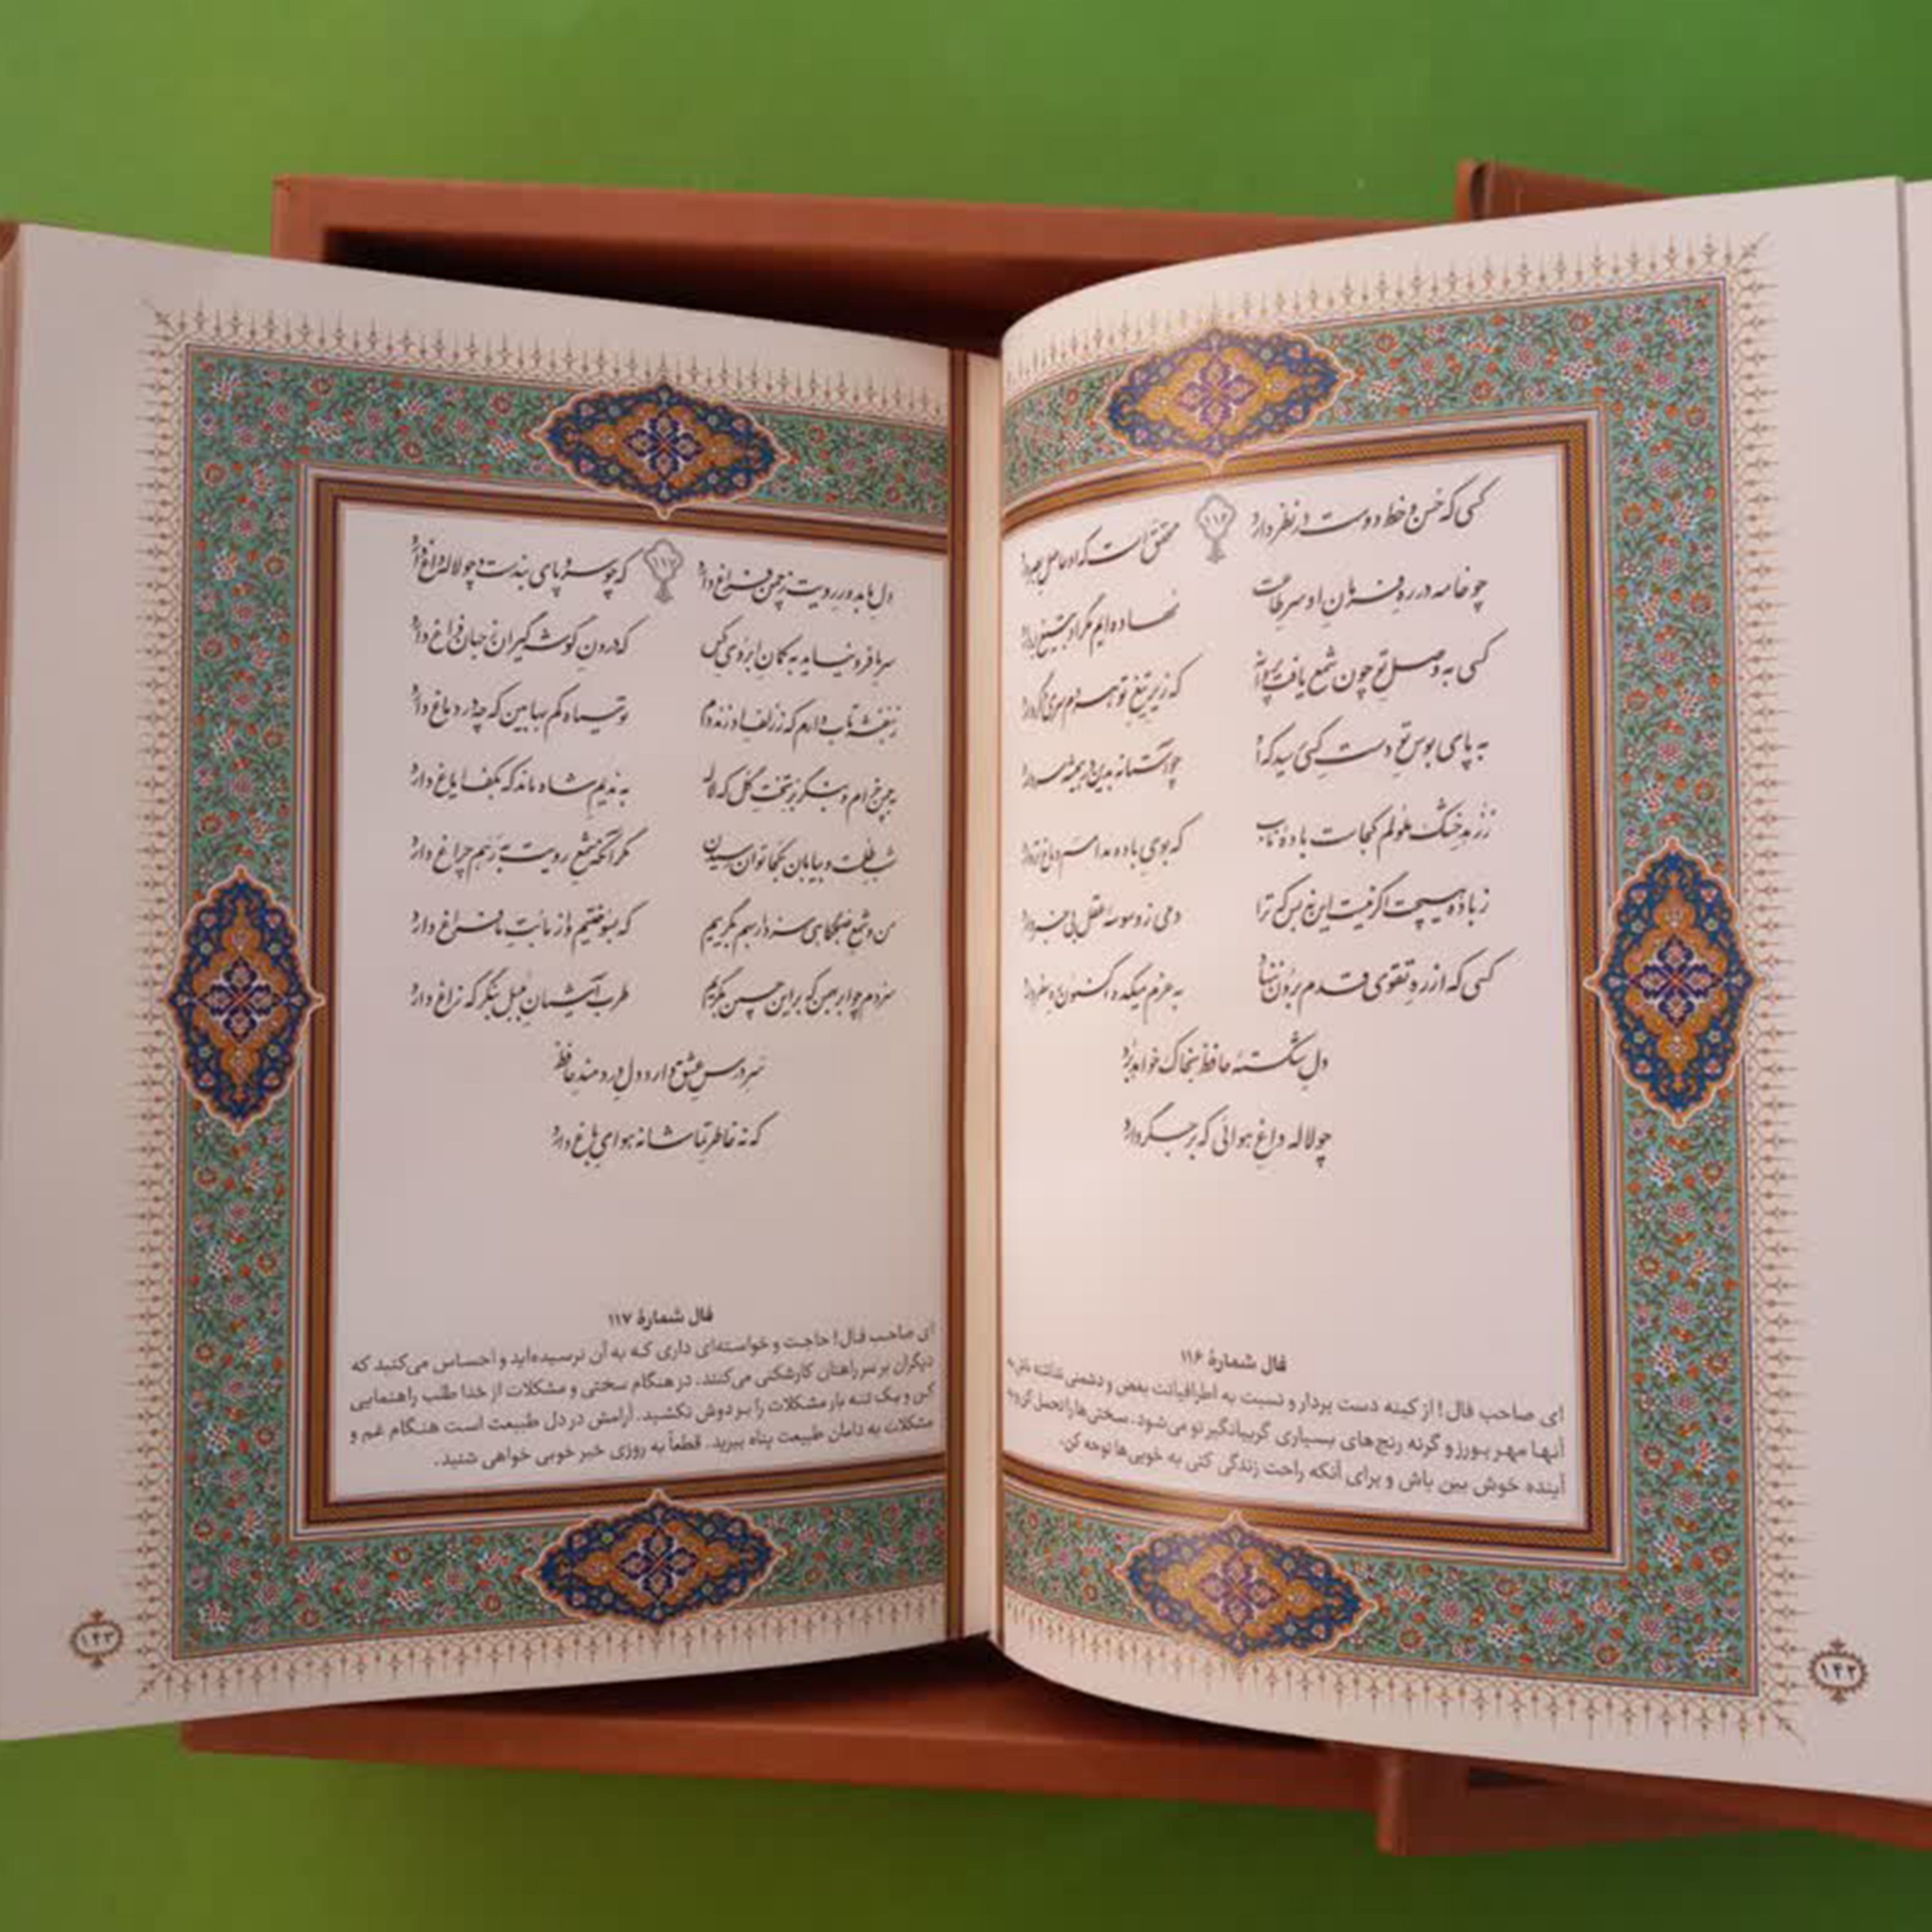 کسی که حسن و خط دوست در نظر دارد ۱۱۶ محقق است که او حاصل بصر دارد
چو خامه در ره فرمان او سر طاعت نهاده‌ایم مگر او به تیغ بردارد
کسی به وصل تو چون شمع یافت پروانه که زیر تیغ تو هر دم سری دگر دارد
به پای بوس تو دست کسی رسید که او چو آستانه بدین در همیشه سر دارد
ز زهد خشک ملولم کجاست باده ناب که بوی باده مدامم دماغ تر دارد
ز باده هیچت اگر نیست این نه بس که ترا دمی ز وسوسه عقل بی خبر دارد
کسی که از ره تقوی قدم برون ننهاد به عزم میکده اکنون ره سفر دارد
دل شکسته حافظ بخاک خواهد برد
چو لاله داغ هوائی که بر جگر دارد
فال شمارهٔ ۱۱۶
ای صاحب فال! از کینه دست بردار و نسبت به اطرافیانت بغض و دشمنی نداشته باش به
آنها مهر بورز و گرنه رنج‌های بسیاری گریبانگیر تو می‌شود. سختی‌ها را تحمل کن و به
آینده خوش بین باش و برای آنکه راحت زندگی کنی به خوبی‌ها توجه کن.
۱۲۲
دل ما به دور رویت ز چمن فراغ دارد ۱۱۷ که چو سرو پای بندست و چو لاله داغ دارد
سر ما فرو نیاید به کمان ابروی کس که درون گوشه گیران ز جهان فراغ دارد
ز بنفشه تاب دارم که ز زلف او زند دم تو سیاه کم بها بین که چه در دماغ دارد
به چمن خرام و بنگر بر تخت گل که لاله به ندیم شاه ماند که بکف ایاغ دارد
شب ظلمت و بیابان بکجا توان رسیدن مگر آنکه شمع رویت به رهم چراغ دارد
من و شمع صبحگاهی سزد ار بهم بگرییم که بسوختیم و از ما بت ما فراغ دارد
سزدم چو ابر بهمن که بر این چمن بگریم طرب آشیان بلبل بنگر که زاغ دارد
سر درس عشق دارد دل دردمند حافظ
که نه خاطر تماشا نه هوای باغ دارد
فال شمارهٔ ۱۱۷
ای صاحب فال! حاجت و خواسته‌ای داری که به آن نرسیده‌اید و احساس می‌کنید که
دیگران بر سر راهتان کارشکنی می‌کنند. در هنگام سختی و مشکلات از خدا طلب راهنمایی
کن و یک تنه بار مشکلات را بر دوش نکشید. آرامش در دل طبیعت است هنگام غم و
مشکلات به دامان طبیعت پناه ببرید. قطعاً به روزی خبر خوبی خواهی شنید.
۱۲۳